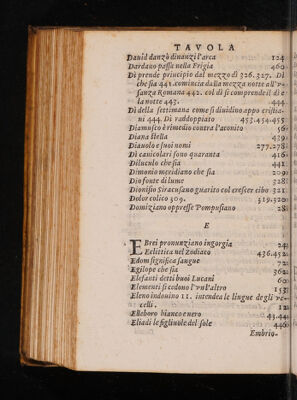 TAVOLA
Dauid danzò dinanzi l'arca 124
Dardano passa nella Frigia 460
Di prende principio dal mezzo dì 326.327. Dì
che sia 441. comincia dalla mezza notte all'v-
sanza Romana 442. col dì si comprende il dì e
la notte 443. 444
Dì della settimana come si diuidino appo cristia-
ni 444. Dì raddoppiato 453.454.455
Diamusco è rimedio contra l'aconito 56
Diana stella 439
Diauolo e suoi nomi 277.278
Dì canicolari sono quaranta 416
Diluculo che sia 441
Dimonio meridiano che sia 209
Dio fonte di lume 328
Dionisio Siracusano guarito col crescer cibo 321
Dolor colico 309. 319.320
Domiziano oppresse Pompusiano 28
E
EBrei pronunziano in gorgia 24
Eclittica nel Zodiaco 436.452
Edom significa sangue 72
Egilope che sia 362
Elefanti detti buoi Lucani 60
Elementi si cedono l'vn l'altro 153
Eleno indouino 11. intendea le lingue degli vc-
celli. 12
Elleboro bianco e nero 43.44
Eliadi le figliuole del sole 446
Embrio-